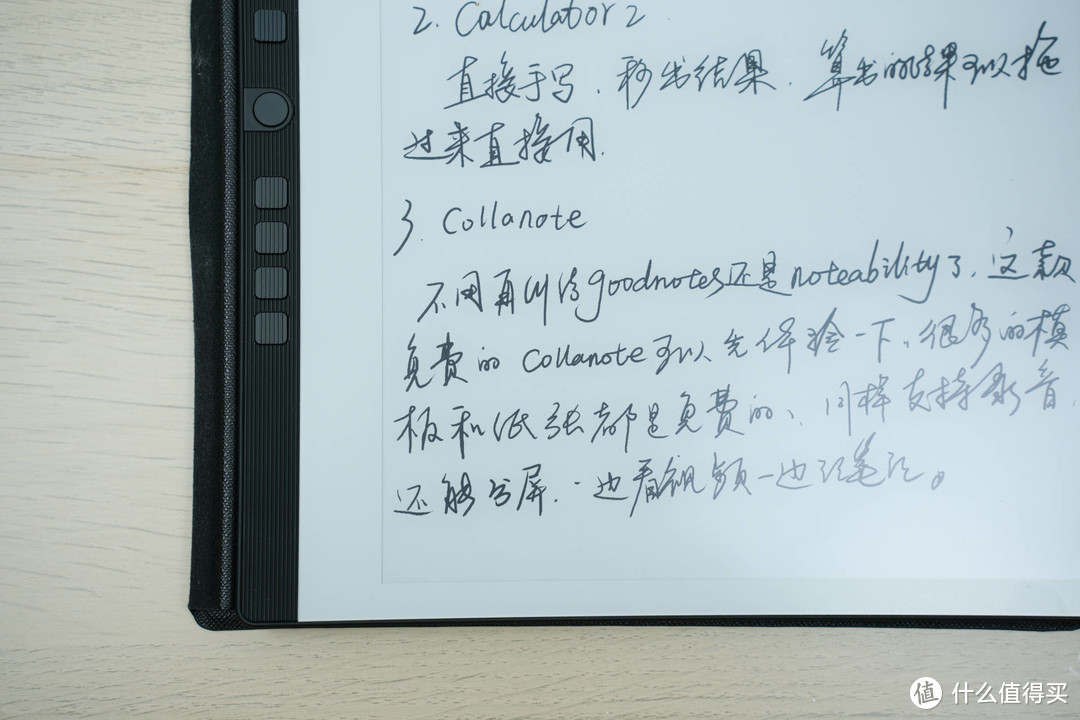 2. Calculator 2
直接手写、秒出结果、算出的结果可以拖
过来直接用.
3. Collanote
不用再纠结goodnotes还是noteability了、这款
免费的 Collanote可以先体验一下、很多的模
板和纸张都是免费的、同样支持录音、
还能分屏、一边看视频一边记笔记。
值 什么值得买